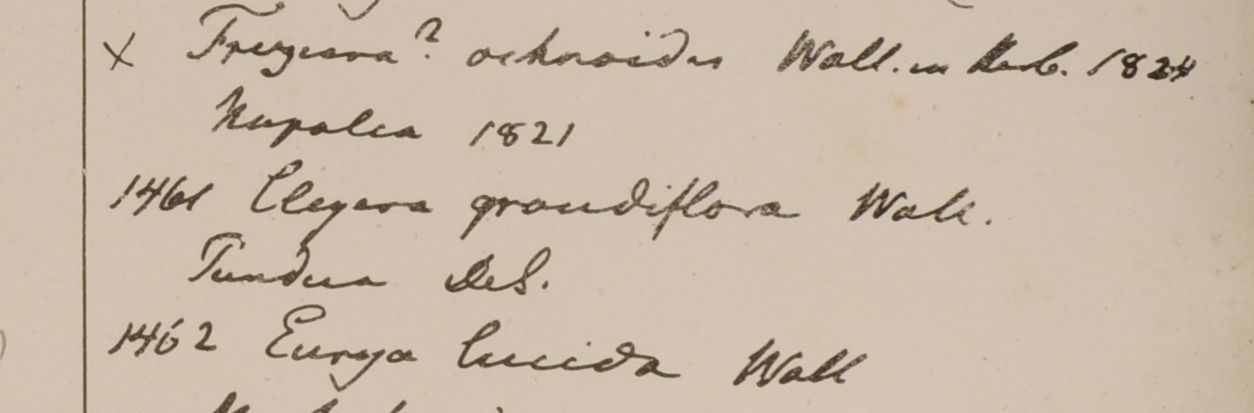 x Freziera? ochnoides Wall. in Herb. 1824
Napalia 1821
1461 Cleyera grandiflora Wall.
Tundua DeS.
1462 Eurya lucida Wall